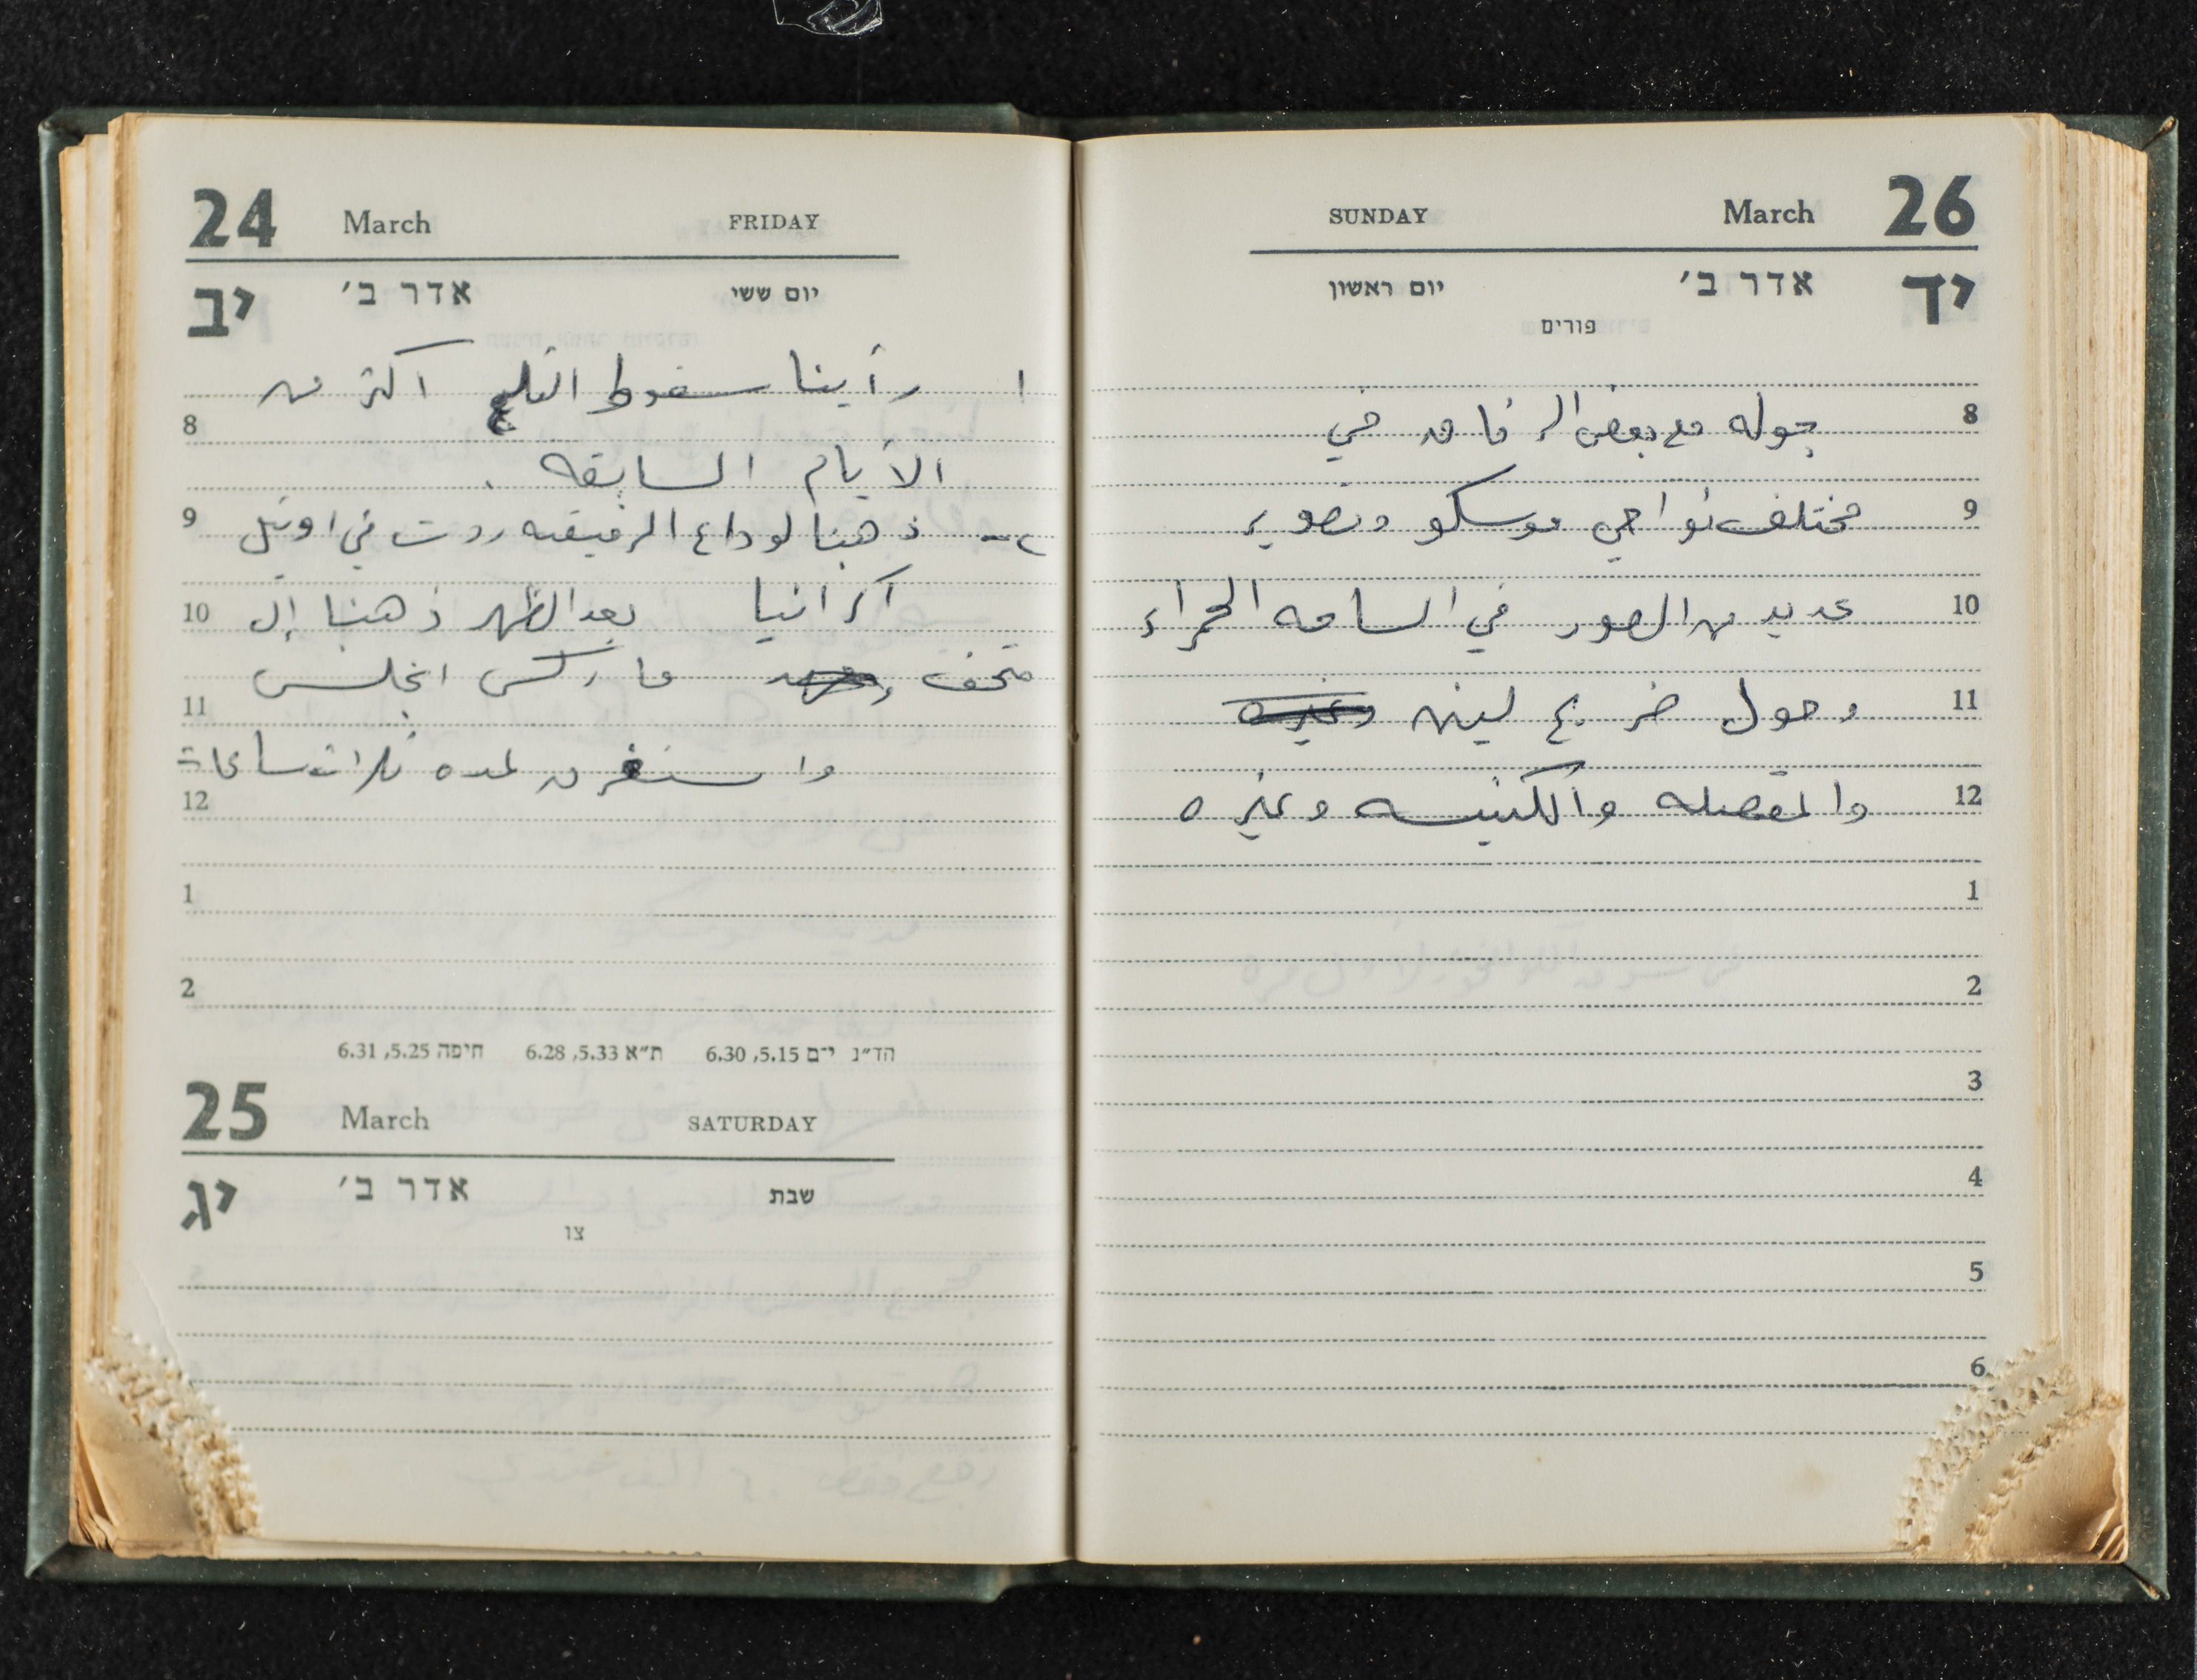 24 March FRIDAY
יב אדר ב׳ יום ששי
ا رأينا سقوط الثلج اكثر من
8
الأيام السابقه .
9 ٢- ذهبنا لوداع الرفيقه روت في اوتيل
10 اكرانيا بعد الظهر ذهبنا إلى
متحف ماركس انجلس
11
واستغرق لمده ثلاث ساعات
12
1
2
הד״נ י־ם 5.15, 6.30 ת״א 5.33, 6.28 חיפה 5.25, 6.31
25 March SATURDAY
יג אדר ב׳ שבת
צו
SUNDAY March 26
יד אדר ב׳ יום ראשון
פורים
8 جوله مع بعض الرفاق في
9 مختلف نواحي موسكو وتصوير
10 عديد من الصور في الساحه الحمراء
11 وحول ضريح لينين وغيره
12 والمقصله والكنيسه وغيره
1
2
3
4
5
6